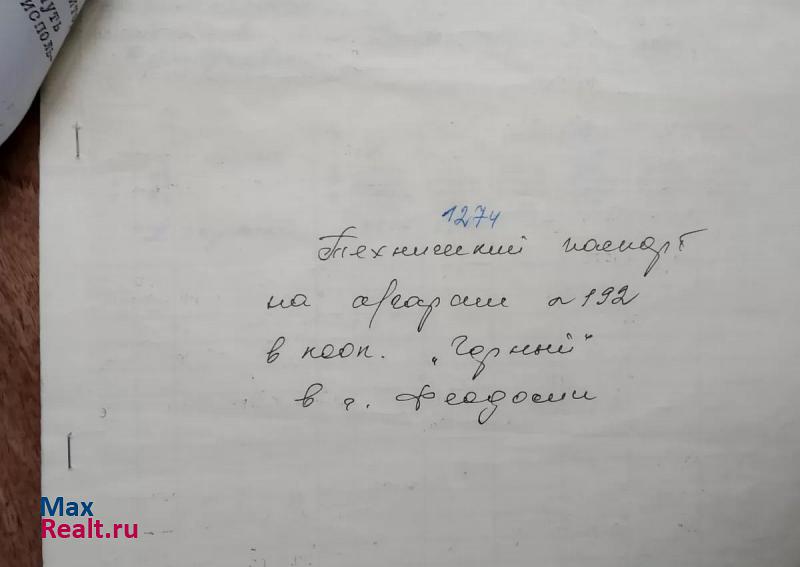 уть
исполь-
1274
Технический паспорт
на а/гараж №192
в кооп. "Горный"
в г. Феодосии
Max
Realt.ru